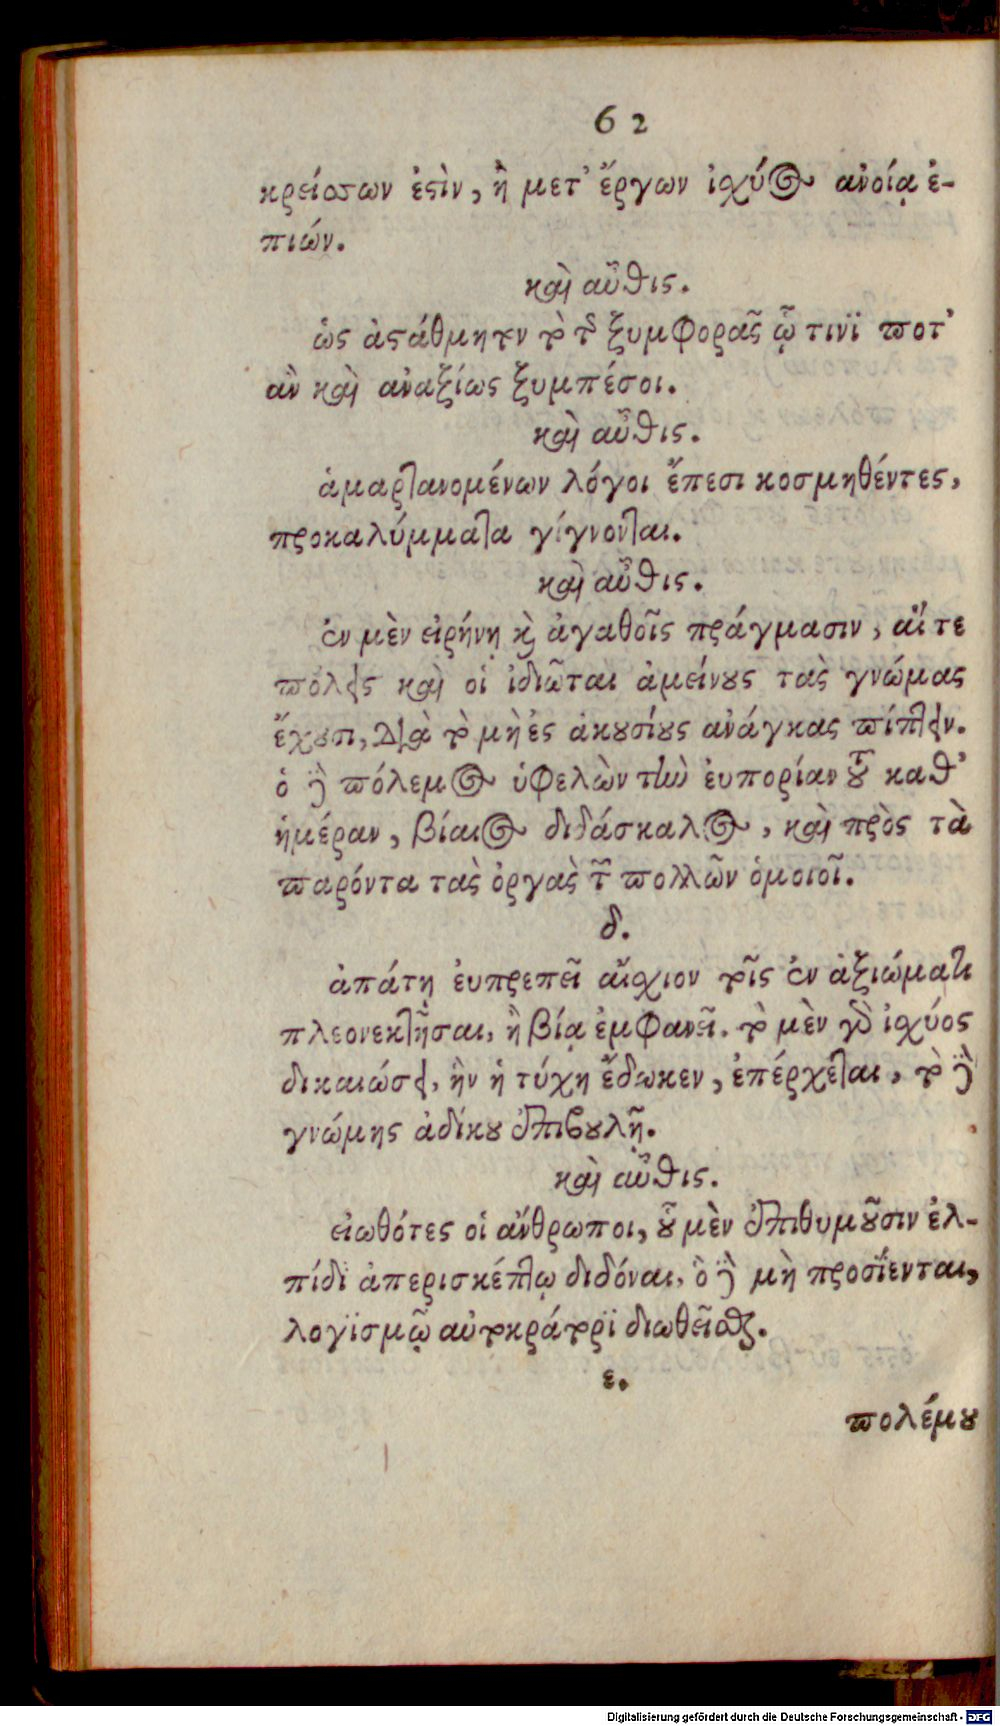 62
κρείσσων ἐστὶν, ἢ μετ' ἔργων ἰσχύος ἀνοίᾳ ἐ-
πιών.
καὶ αὖθις.
ὡς ἀστάθμητον τὸ τῆς ξυμφορᾶς ᾧ τινϊ ποτ'
ἂν καὶ ἀναξίως ξυμπέσοι.
καὶ αὖθις.
ἁμαρτανομένων λόγοι ἔπεσι κοσμηθέντες,
προκαλύμματα γίγνονται.
καὶ αὖθις.
ἐν μὲν εἰρήνῃ καὶ ἀγαθοῖς πράγμασιν, αἵ τε
πόλεις καὶ οἱ ἰδιῶται ἀμείνους τὰς γνώμας
ἔχουσι, διὰ τὸ μὴ ἐς ἀκουσίους ἀνάγκας πίπτειν.
ὁ δὲ πόλεμος ὑφελὼν τὴν ἐυπορίαν τοῦ καθ'
ἡμέραν, βίαιος διδάσκαλος, καὶ πρὸς τὰ
παρόντα τὰς ὀργὰς τῶν πολλῶν ὁμοιοῖ.
δ.
ἀπάτῃ ἐυπρεπεῖ αἴσχιον τοῖς ἐν ἀξιώματι
πλεονεκτῆσαι, ἢ βίᾳ ἐμφανεῖ. τὸ μὲν γὰρ ἰσχύος
δικαιώσει, ἣν ἡ τύχη ἔδωκεν, ἐπέρχεται, τὸ δὲ
γνώμης ἀδίκου ἐπιβουλῇ.
καὶ αὖθις.
εἰωθότες οἱ ἄνθρωποι, οὗ μὲν ἐπιθυμοῦσιν ἐλ-
πίδϊ ἀπερισκέπτῳ διδόναι, ὃ δὲ μὴ προσΐενται,
λογϊσμῷ αὐτοκράτορϊ διωθεῖσθαι.
ε.
πολέμου
Digitalisierung gefördert durch die Deutsche Forschungsgemeinschaft - DFG